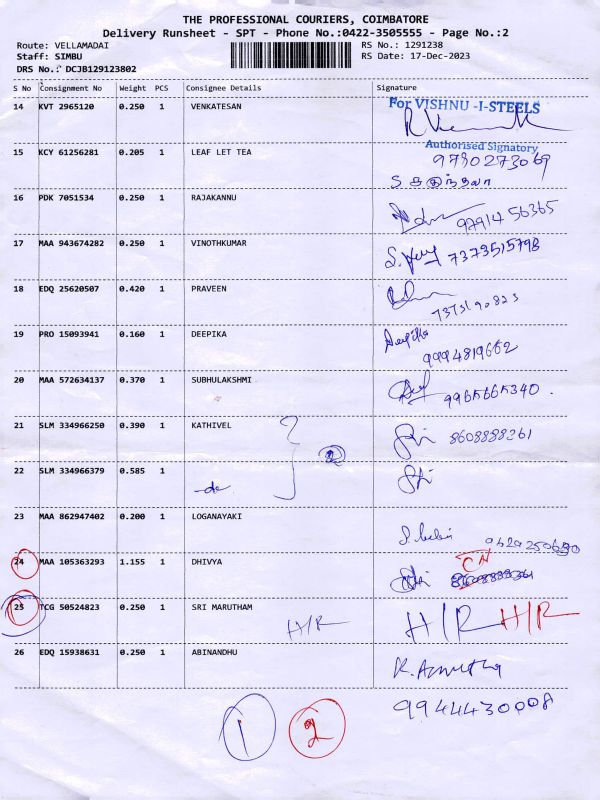 THE PROFESSIONAL COURIERS, COIMBATORE
Delivery Runsheet - SPT - Phone No.:0422-3505555 - Page No.:2
Route: VELLAMADAI RS No.: 1291238
Staff: SIMBU RS Date: 17-Dec-2023
DRS No.: DCJB129123802
S No Consignment No Weight PCS Consignee Details Signature
For VISHNU -I-STEELS
14 KVT 2965120 0.250 1 VENKATESAN
Authorised Signatory
15 KCY 61256281 0.205 1 LEAF LET TEA 9780273069
16 PDK 7051534 0.250 1 RAJAKANNU 9791456365
17 MAA 943674282 0.250 1 VINOTHKUMAR 7373515798
18 EDQ 25620507 0.420 1 PRAVEEN
7373190823
19 PRO 15093941 0.160 1 DEEPIKA Deepika
9994819662
20 MAA 572634137 0.370 1 SUBHULAKSHMI 9965665340.
21 SLM 334966250 0.390 1 KATHIVEL 8608888261
2
22 SLM 334966379 0.585 1
-do-
23 MAA 862947402 0.200 1 LOGANAYAKI
CN
24 MAA 105363293 1.155 1 DHIVYA
25 TCG 50524823 0.250 1 SRI MARUTHAM H/R H/R H/R
26 EDQ 15938631 0.250 1 ABINANDHU
9944430008
1 2